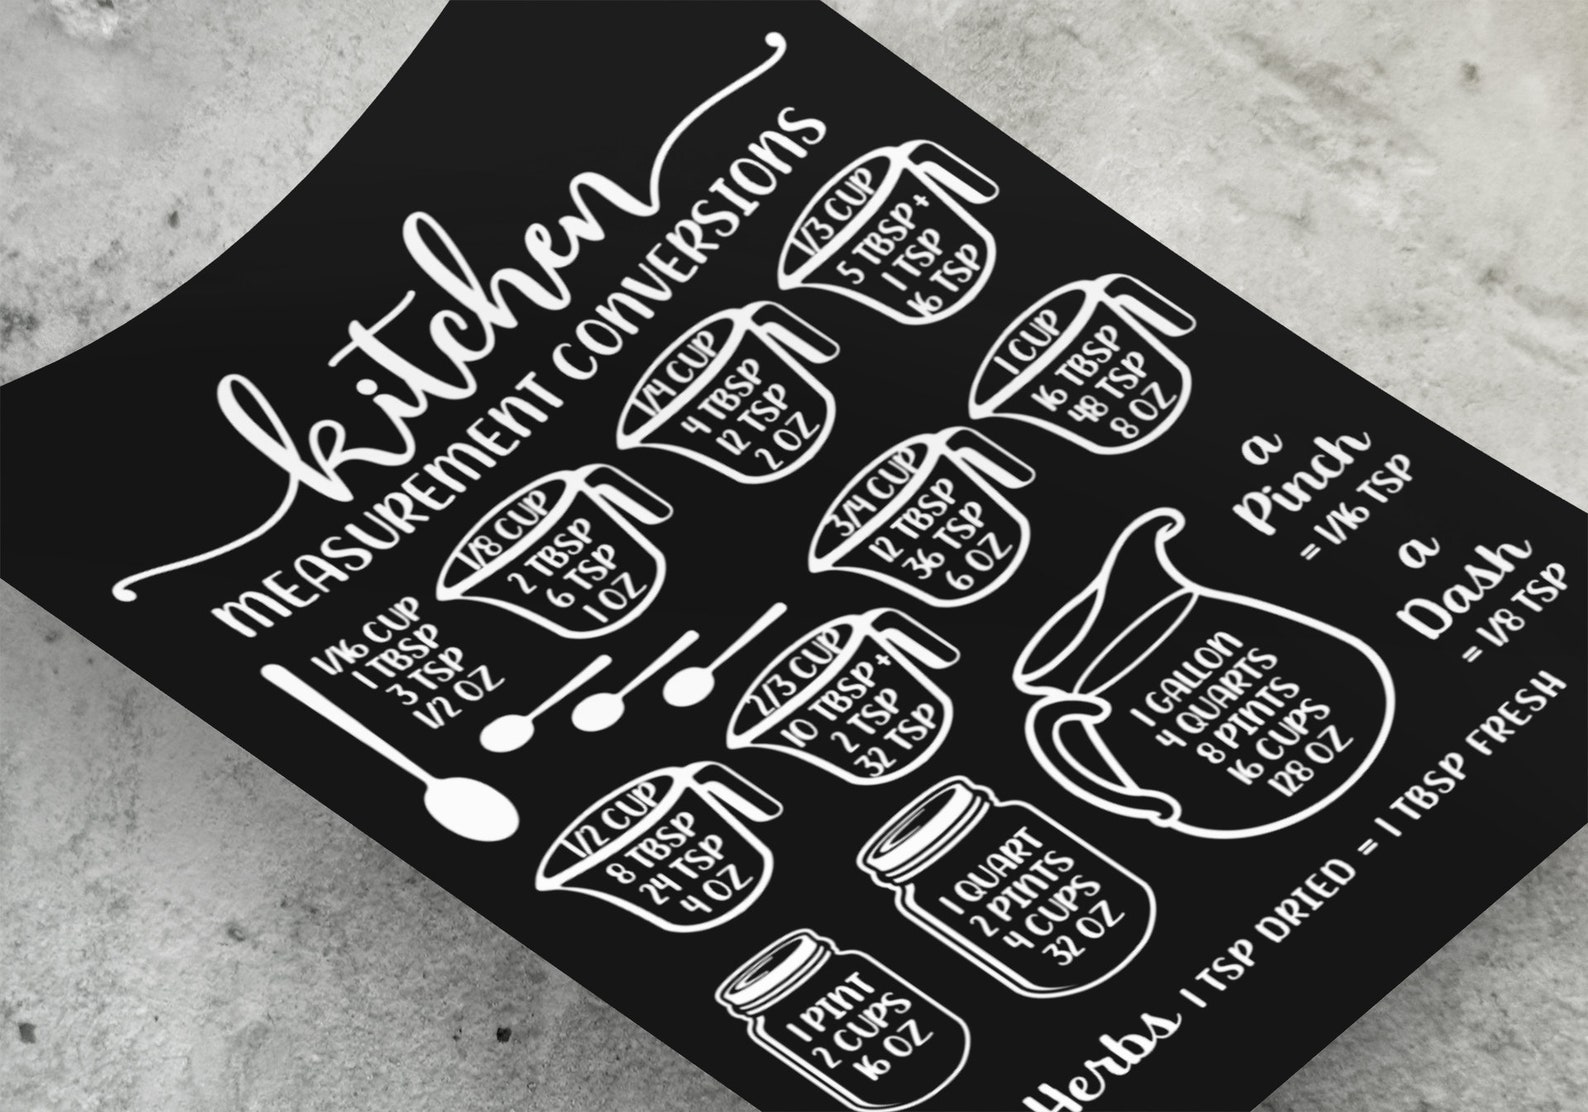 kitchen
MEASUREMENT CONVERSIONS
1/16 CUP
1 TBSP
3 TSP
1/2 OZ
1/8 CUP
2 TBSP
6 TSP
1 OZ
1/4 CUP
4 TBSP
12 TSP
2 OZ
1/3 CUP
5 TBSP+
1 TSP
16 TSP
1/2 CUP
8 TBSP
24 TSP
4 OZ
2/3 CUP
10 TBSP+
2 TSP
32 TSP
3/4 CUP
12 TBSP
36 TSP
6 OZ
1 CUP
16 TBSP
48 TSP
8 OZ
1 PINT
2 CUPS
16 OZ
1 QUART
2 PINTS
4 CUPS
32 OZ
1 GALLON
4 QUARTS
8 PINTS
16 CUPS
128 OZ
a
Pinch
= 1/16 TSP
a
Dash
= 1/8 TSP
Herbs 1 TSP DRIED = 1 TBSP FRESH